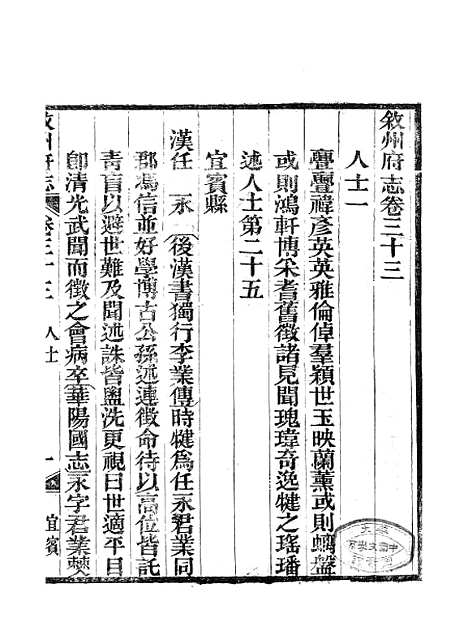 敘州府志卷三十三
人士一
亹亹褘彥英英雅倫倬羣穎世玉映蘭薰或則螭盤
或則鴻軒博采耆舊徵諸見聞瑰瑋奇逸犍之瑤璠
述人士第二十五
宜賓縣
漢任 永 後漢書獨行李業傳時犍爲任永君業同
郡馮信並好學博古公孫述連徵命待以高位皆託
青盲以避世難及聞述誅皆盥洗更視曰世適平目
卽清光武聞而徵之會病卒華陽國志永字君業僰
敘州府志 卷三十三 人士 一 宜賓